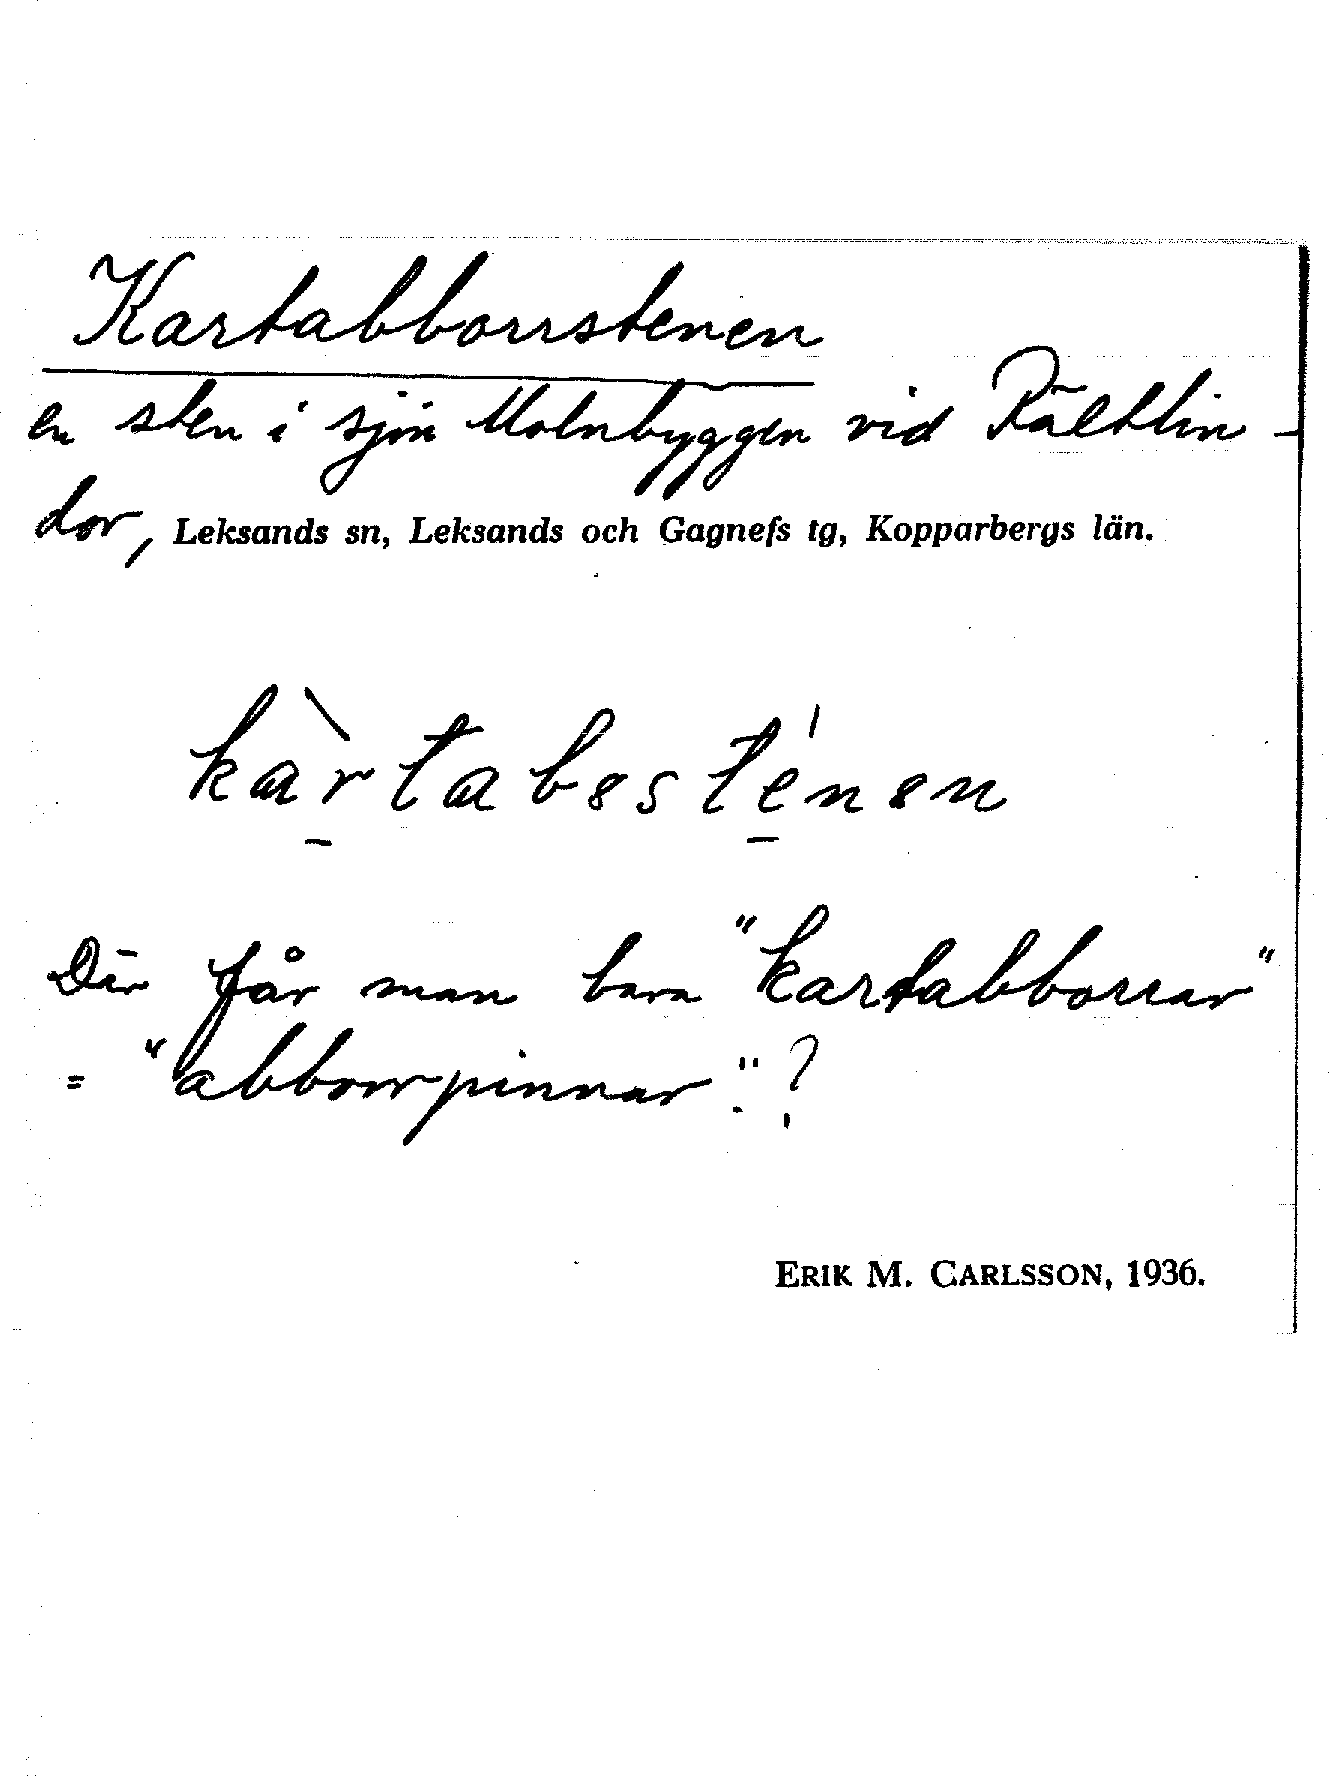 Kartabborrstenen
en sten i sjön Molnbyggen vid Rältlin-
dor, Leksands sn, Leksands och Gagnefs tg, Kopparbergs län.
kàrtabəsténən
Där får man bara "kartabborrar"
= "abborrpinnar". ?
ERIK M. CARLSSON, 1936.